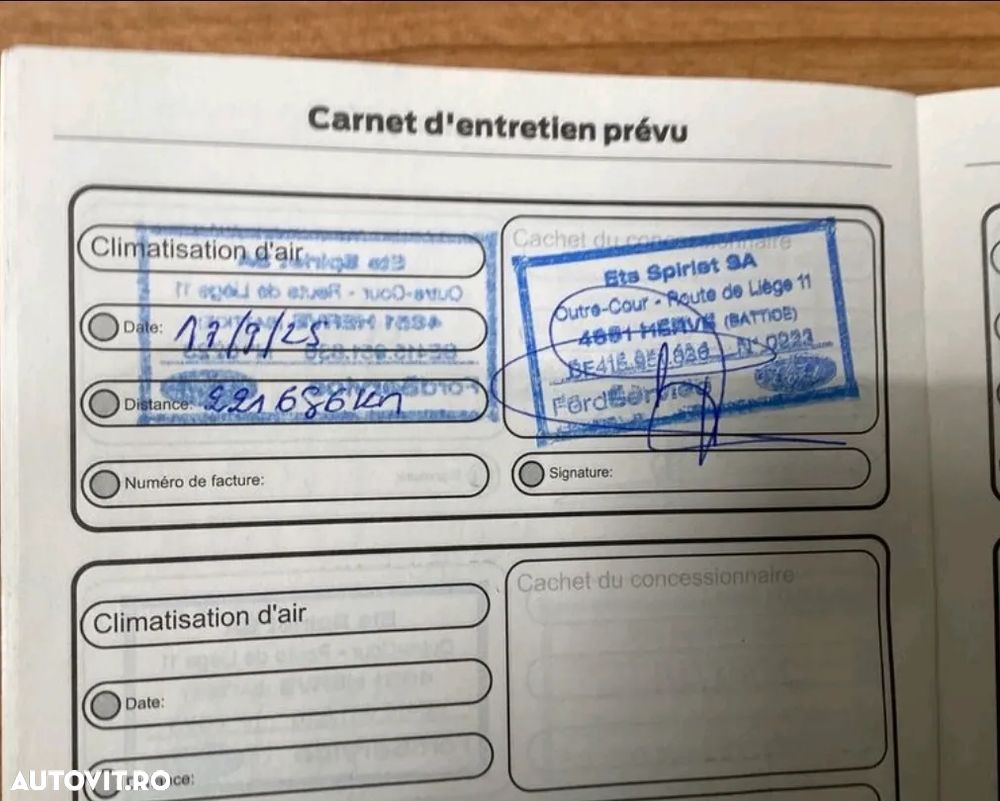 Carnet d'entretien prévu
Climatisation d'air
Cachet du concessionnaire
Ets Spirlet SA
Outre-Cour - Route de Liège 11
4651 HERVE (BATTICE)
FordService
Date: 17/7/25
Distance: 221 686 km
Numéro de facture:
Signature:
Climatisation d'air
Cachet du concessionnaire
Date:
AUTOVIT.RO